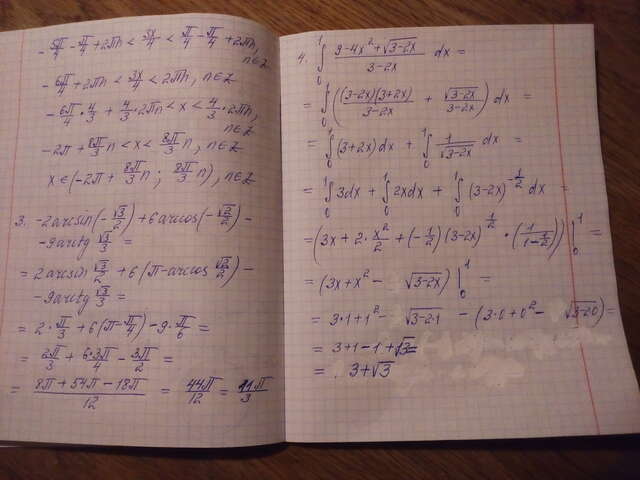 -5π/4 - π/4 + 2πn < 3x/4 < π/4 - π/4 + 2πn, n∈Z
-6π/4 + 2πn < 3x/4 < 2πn, n∈Z
-6π/4 · 4/3 + 4/3 · 2πn < x < 4/3 · 2πn, n∈Z
-2π + 8π/3 n < x < 8π/3 n, n∈Z
x∈(-2π + 8π/3 n; 8π/3 n), n∈Z
3. -2arcsin(-√3/2) + 6arccos(-√2/2) -
- 9arctg √3/3 =
= 2arcsin √3/2 + 6(π - arccos √2/2) -
- 9arctg √3/3 =
= 2·π/3 + 6(π - π/4) - 9·π/6 =
= 2π/3 + 6·3π/4 - 3π/2 =
= (8π + 54π - 18π)/12 = 44π/12 = 11π/3
4. ∫₀¹ (9 - 4x² + √(3-2x))/(3-2x) dx =
= ∫₀¹ ((3-2x)(3+2x)/(3-2x) + √(3-2x)/(3-2x)) dx =
= ∫₀¹ (3+2x)dx + ∫₀¹ 1/√(3-2x) dx =
= ∫₀¹ 3dx + ∫₀¹ 2xdx + ∫₀¹ (3-2x)^(-1/2) dx =
= (3x + 2·x²/2 + (-1/2)(3-2x)^(1/2) · (1/(1-1/2)))|₀¹ =
= (3x + x² - √(3-2x))|₀¹ =
= 3·1 + 1² - √(3-2·1) - (3·0 + 0² - √(3-2·0)) =
= 3 + 1 - 1 + √3 =
= 3 + √3